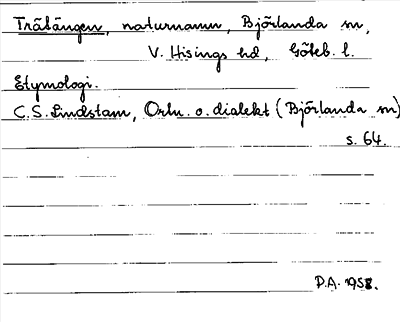 Trätängen, naturnamn, Björlanda sn,
V. Hisings hd, Göteb. l.
Etymologi.
C. S. Lindstam, Ortn. o. dialekt (Björlanda sn)
s. 64.
D.A. 1958.